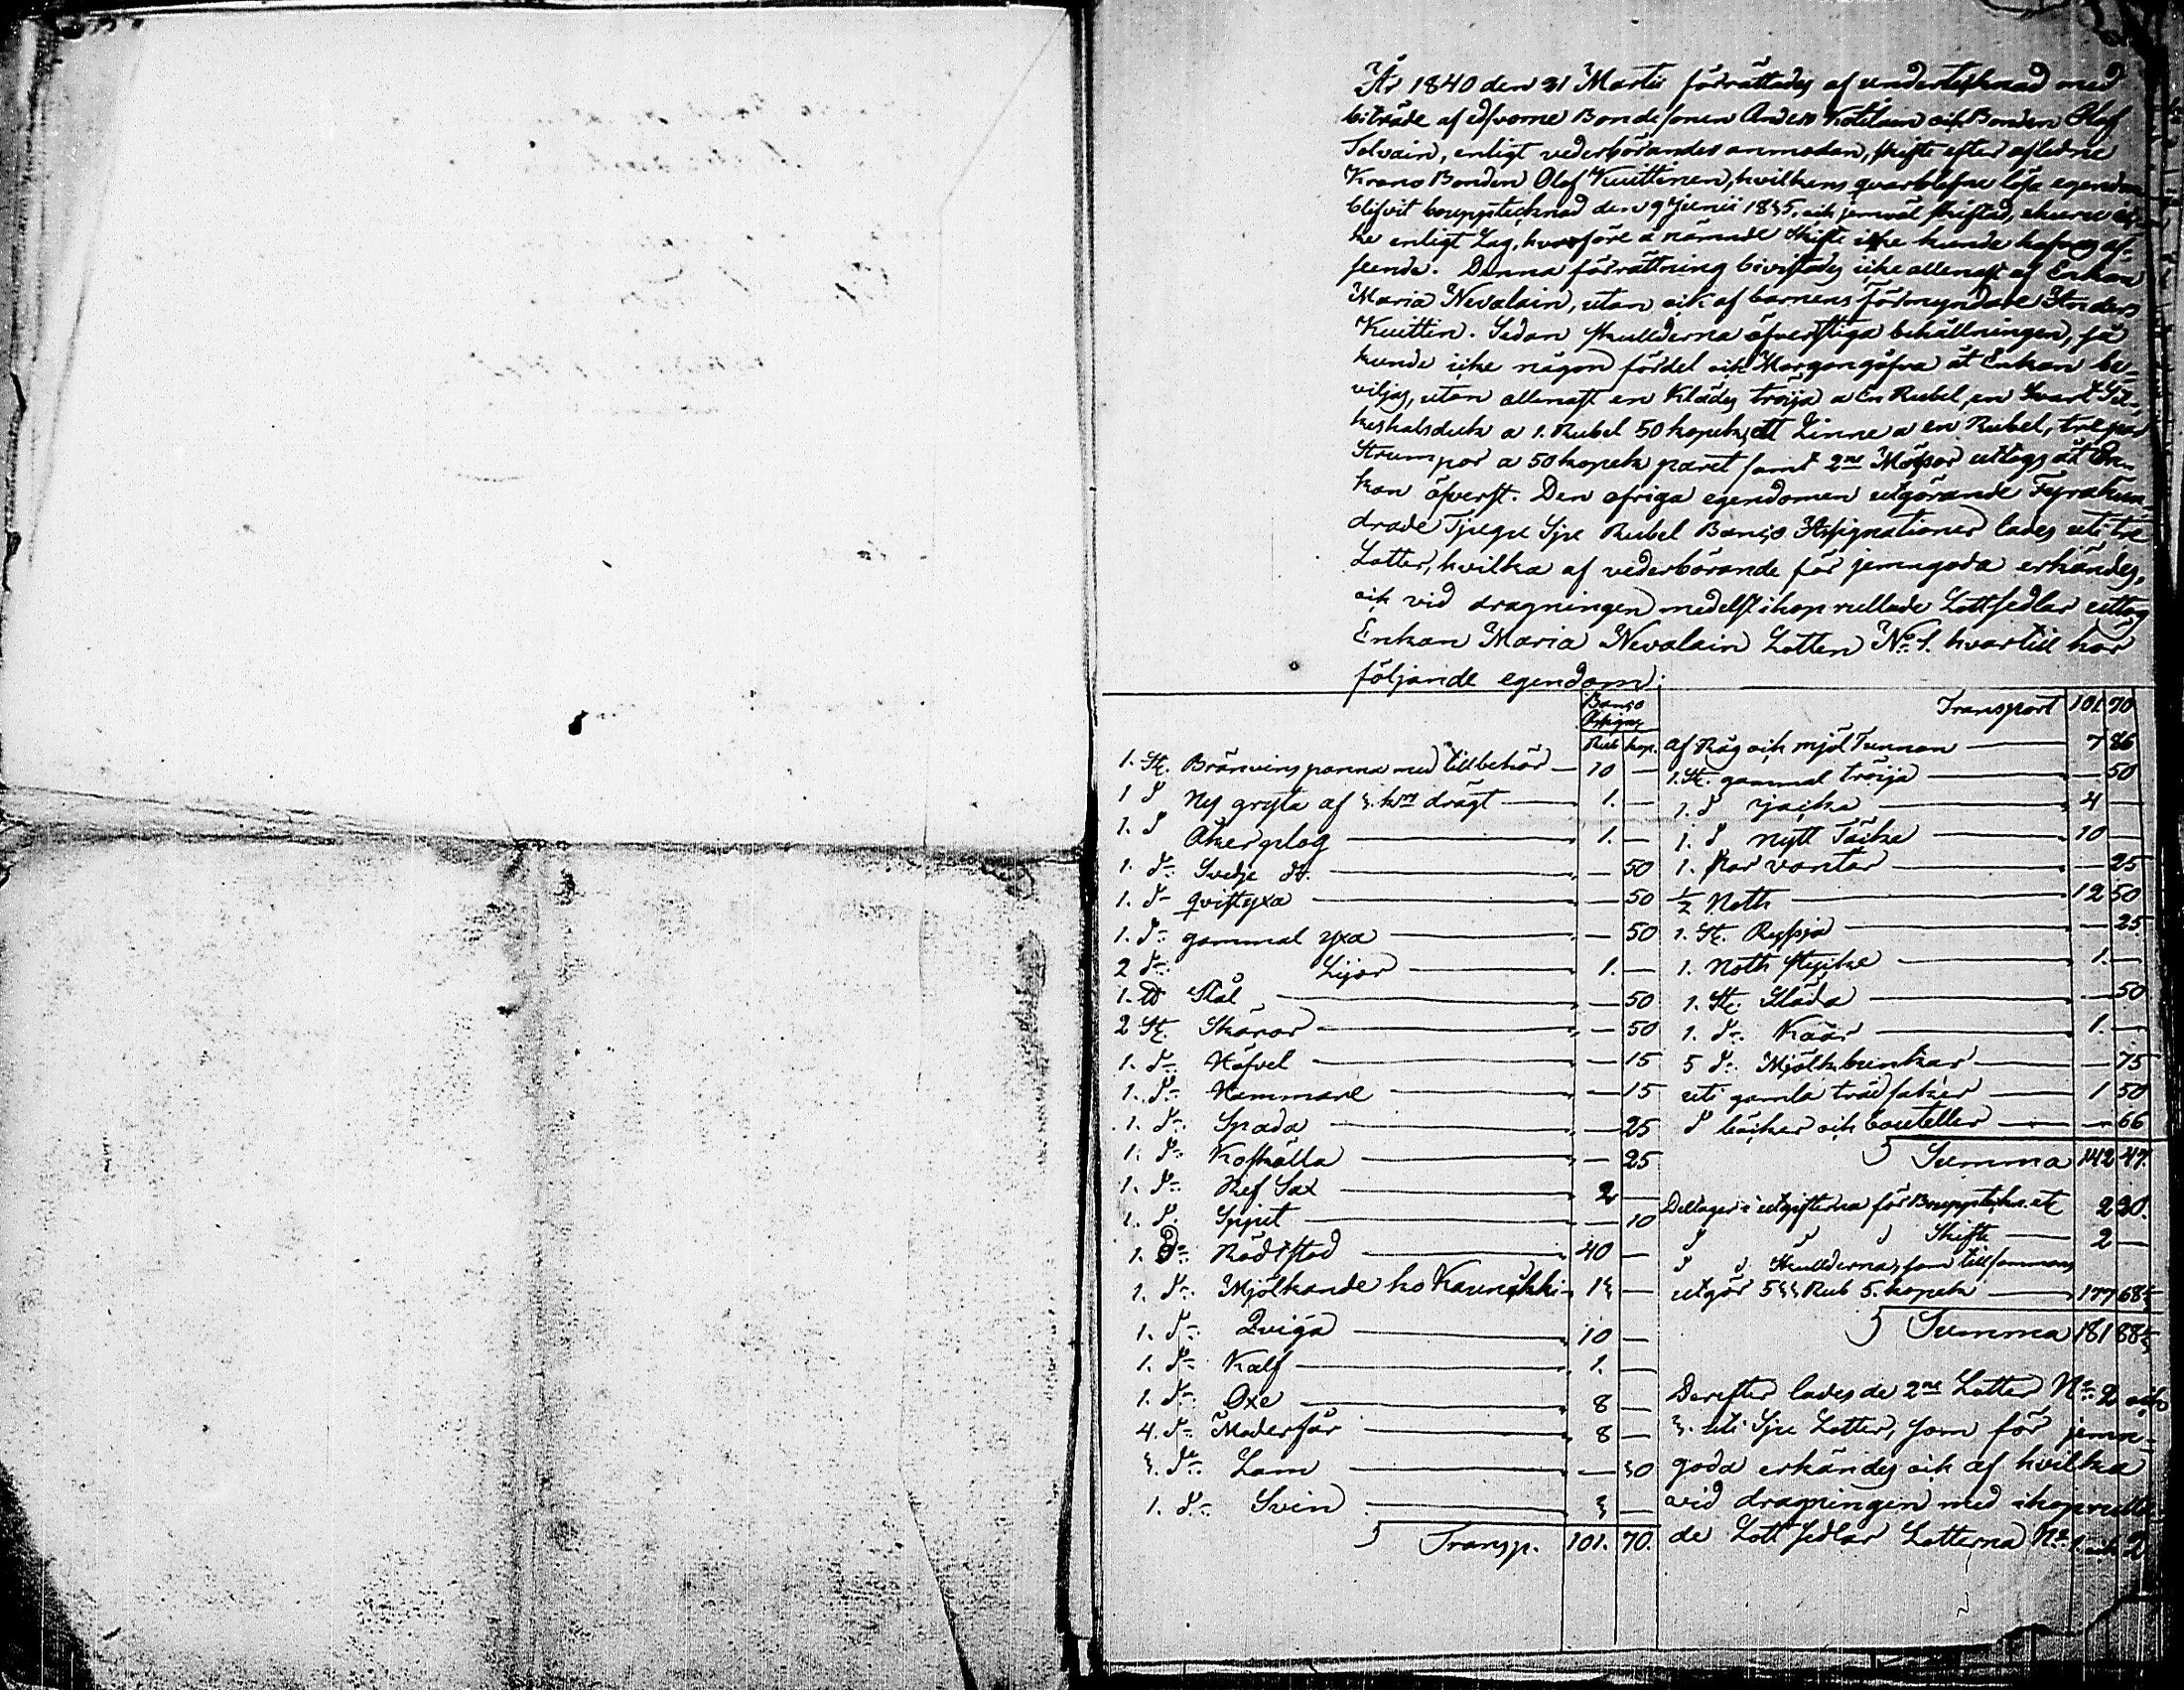 År 1840 den 31 Martii förrättades af undertecknad med
biträde af edsvorne Bondesonen Anders Kotilain och Bonden Olof
Tolvain, enligt vederbörandes anmodan, skifte efter aflidne
Krono Bonden Olof Kuittinen, hvilkens qvarblefne lösa egendom
blifvit boupptecknad den 9 Junii 1835, och jemväl skiftad, ehuru ic-
ke enligt Lag, hvarföre å nämnde Skifte icke kunde hafvas af-
seende. Denna förrättning bivistades icke allenast af Enkan
Maria Nevalain, utan ock af barnens Förmyndare Anders
Kuittin. Sedan skullderna öfverstiga behållningen, så
kunde icke någon fördel och Morgongåfva åt Enkan be-
viljas, utan allenast en Klädes tröija a En Rubel, en Svart Sil-
keshalsduk a 1. Rubel 50 kopek, ett Linne a en Rubel, tre par
Strumpor a 50 kopek paret samt 2ne Mössor uttogs åt En-
kan öfverst. Den öfriga egendomen utgörande Fyrahun-
drade Tjugu Sju Rubel Banco Assignationer lades uti tre
Lotter, hvilka af vederbörande för jemngoda erkändes,
och vid dragningen medelst ihoprullade Lottsedlar uttog
Enkan Maria Nevalain Lotten No 1. hvartill hör
följande egendom:
Banco
Assigns
Rub kop.
1. St. Bränvinspanna med tillbehör — 10 —
1 D Ny gryta af 3. krs drägt — 1. —
1. D Åkerplog — 1. —
1. Do Svedje do. — 50
1. Do qvistyxa — 50
1. Do gammal yxa — 50
2 Do Lijor — 1. —
1. ℔ Stål — 50
2 St. Skäror — 50
1. Do Höfvel — 15
1. Do Hammare — 15
1. Do Spada — 25
1. Do Koskälla — 25
1. Do Ref Sax — 2 —
1. D. Spjut — 10
1. Do — 40 —
1. Do Mjölkande ko — 13 —
1. Do Qviga — 10 —
1. Do Kalf — 1. —
1. Do Oxe — 8 —
4. Do Moderfår — 8 —
3. Do Lam — 30
1. Do Svin — 3 —
Transp. 101. 70.
Transport 101 70
af Råg och mjöl Tunnan — 7 86
1. St. gammal tröija — 50
1. D jacka — 4 —
1. D nytt Täcke — 10 —
1. Par vantar — 25
½ Noth — 12 50
1. St. Ryssja — 25
1. Noth stycke — 1. —
1. St. Släda — 50
1. Do Kaar — 1. —
5 Do Mjölkbunkar — 75
uti gamla trädsaker — 1 50
D böcker och bouteller — 66
Summa 142 47.
Deltager i utgifterna för Bouppteckn. etc 2 20.
D D D Skifte — 2 —
D D Skullderna, som tillsammans
utgör 533 Rub 5. kopek — 177 68⅓
Summa 181 88⅓
Derefter lades de 2ne Lotter No 2 och
3. uti Sju Lotter, som för jemn-
goda erkändes och af hvilka
vid dragningen med ihoprulla-
de Lott sedlar Lotterna No 1. och 2